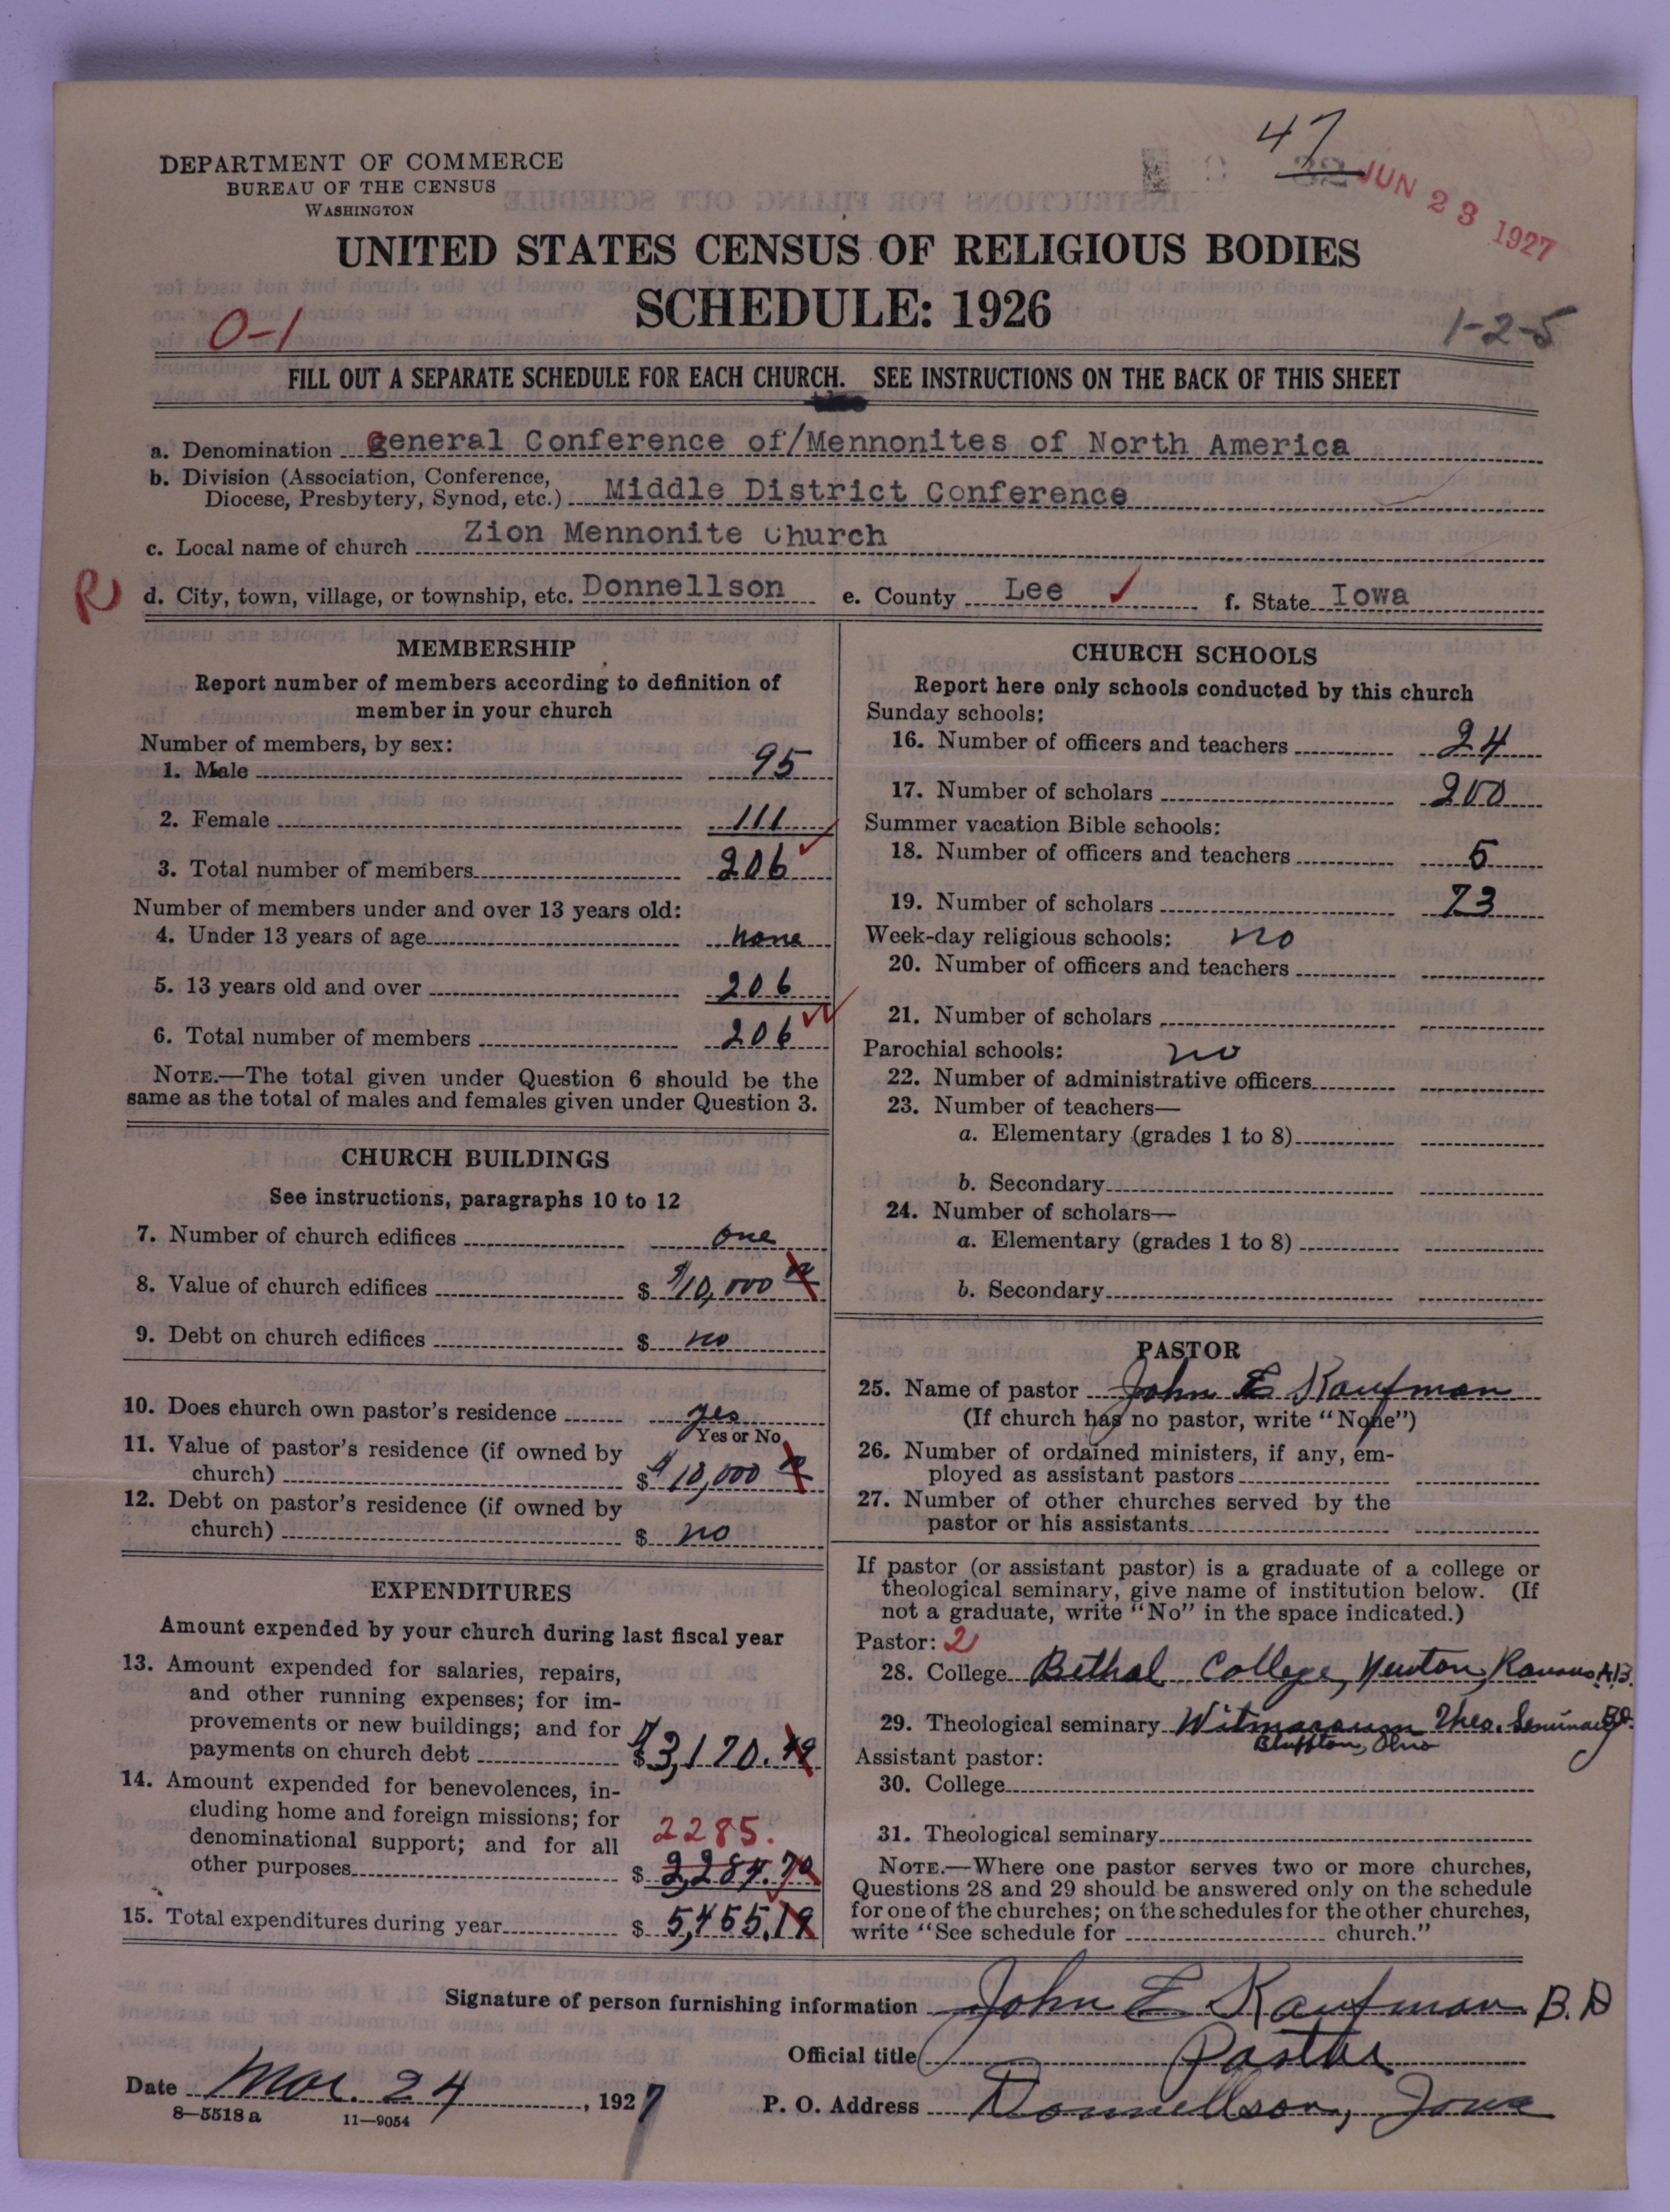 47
JUN 23 1927
DEPARTMENT OF COMMERCE
BUREAU OF THE CENSUS
WASHINGTON
UNITED STATES CENSUS OF RELIGIOUS BODIES
SCHEDULE: 1926
0-1
1-2-5
FILL OUT A SEPARATE SCHEDULE FOR EACH CHURCH. SEE INSTRUCTIONS ON THE BACK OF THIS SHEET
a. Denomination General Conference of/Mennonites of North America
b. Division (Association, Conference,
Diocese, Presbytery, Synod, etc.) Middle District Conference
c. Local name of church Zion Mennonite Church
R d. City, town, village, or township, etc. Donnellson e. County Lee f. State Iowa
MEMBERSHIP
Report number of members according to definition of
member in your church
Number of members, by sex:
1. Male 95
2. Female 111
3. Total number of members 206
Number of members under and over 13 years old:
4. Under 13 years of age none
5. 13 years old and over 206
6. Total number of members 206
NOTE.—The total given under Question 6 should be the
same as the total of males and females given under Question 3.
CHURCH BUILDINGS
See instructions, paragraphs 10 to 12
7. Number of church edifices one
8. Value of church edifices $ $10,000
9. Debt on church edifices $ no
10. Does church own pastor's residence yes
Yes or No
11. Value of pastor's residence (if owned by
church) $ $10,000
12. Debt on pastor's residence (if owned by
church) $ no
EXPENDITURES
Amount expended by your church during last fiscal year
13. Amount expended for salaries, repairs,
and other running expenses; for im-
provements or new buildings; and for
payments on church debt $ $3,170.49
14. Amount expended for benevolences, in-
cluding home and foreign missions; for
denominational support; and for all 2285.
other purposes $ 2,284.70
15. Total expenditures during year $ 5,455.19
CHURCH SCHOOLS
Report here only schools conducted by this church
Sunday schools:
16. Number of officers and teachers 24
17. Number of scholars 200
Summer vacation Bible schools:
18. Number of officers and teachers 5
19. Number of scholars 73
Week-day religious schools: no
20. Number of officers and teachers
21. Number of scholars
Parochial schools: no
22. Number of administrative officers
23. Number of teachers—
a. Elementary (grades 1 to 8)
b. Secondary
24. Number of scholars—
a. Elementary (grades 1 to 8)
b. Secondary
PASTOR
25. Name of pastor John E Kaufman
(If church has no pastor, write "None")
26. Number of ordained ministers, if any, em-
ployed as assistant pastors
27. Number of other churches served by the
pastor or his assistants
If pastor (or assistant pastor) is a graduate of a college or
theological seminary, give name of institution below. (If
not a graduate, write "No" in the space indicated.)
Pastor: 2
28. College Bethel College, Newton, Kansas A.B.
29. Theological seminary Witmarsum Theo. Seminary B.D.
Bluffton, Ohio
Assistant pastor:
30. College
31. Theological seminary
NOTE.—Where one pastor serves two or more churches,
Questions 28 and 29 should be answered only on the schedule
for one of the churches; on the schedules for the other churches,
write "See schedule for church."
Signature of person furnishing information John E Kaufman B.D
Official title Pastor
Date Mar. 24, 1927 P. O. Address Donnellson, Iowa
8-5518 a 11-9054